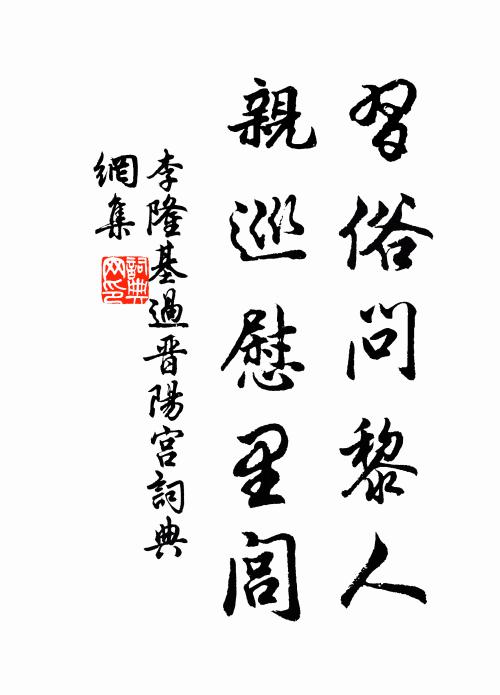 習俗問黎人
親巡慰里閭
李隆基過晋陽宮詞典
網集
詞典
网印